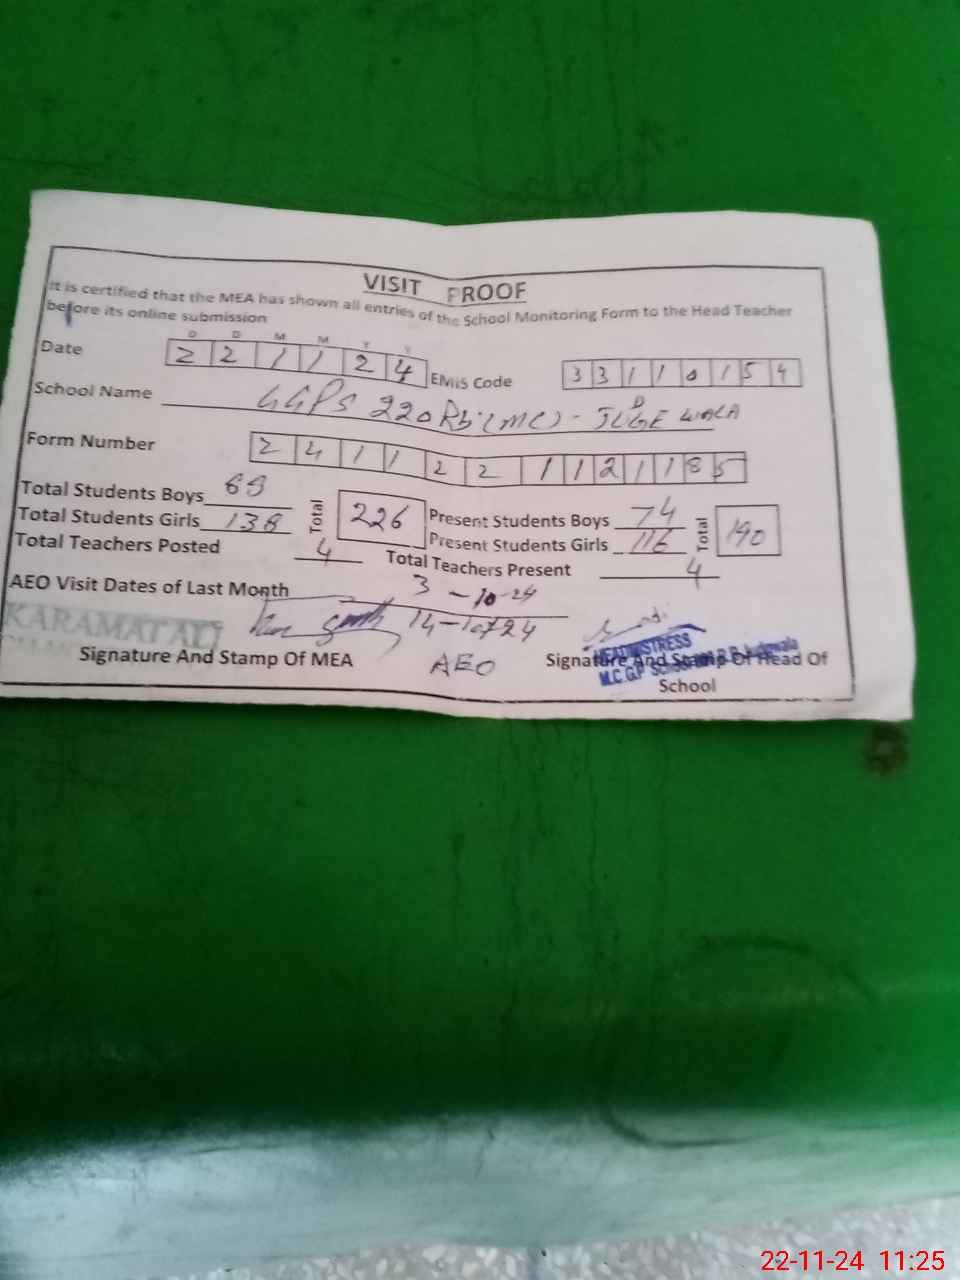 VISIT PROOF
It is certified that the MEA has shown all entries of the School Monitoring Form to the Head Teacher
before its online submission
D D M M Y Y
Date 2 2 1 1 2 4 EMIS Code 3 3 1 1 0 1 5 4
School Name GGPS 220 Rb (MC) - JUDGE WALA
Form Number 2 4 1 1 2 2 1 1 2 1 1 8 5
Total Students Boys
Total Students Girls 138 Total 226
Present Students Boys 74
Present Students Girls 116 Total 190
Total Teachers Posted 4 Total Teachers Present 4
AEO Visit Dates of Last Month 3-10-24
14-10-24
KARAMAT ALI
AEO
HEADMISTRESS
M.C.G.P School
Signature And Stamp Of MEA
Signature And Stamp Of Head Of
School
22-11-24 11:25